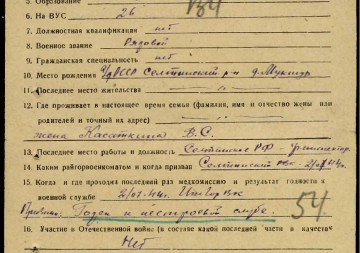 5. Образование
6. На ВУС 26
134
7. Должностная квалификация нет
8. Военное звание Рядовой
9. Гражданская специальность нет
10. Место рождения УАССР Селтинский р-н д.
11. Последнее место жительства — " —
12. Где проживает в настоящее время семья (фамилия, имя и отчество жены или
родителей и точный их адрес)
жена Касаткина В.С.
13. Последнее место работы и должность Селтинское
14. Каким райгорвоенкоматом и когда призван Селтинский РВК
15. Когда и где проходил последний раз медкомиссию и результат годности к
военной службе
Годен к нестроевой службе
54
16. Участие в Отечественной войне (в составе какой последней части в качестве
Нет